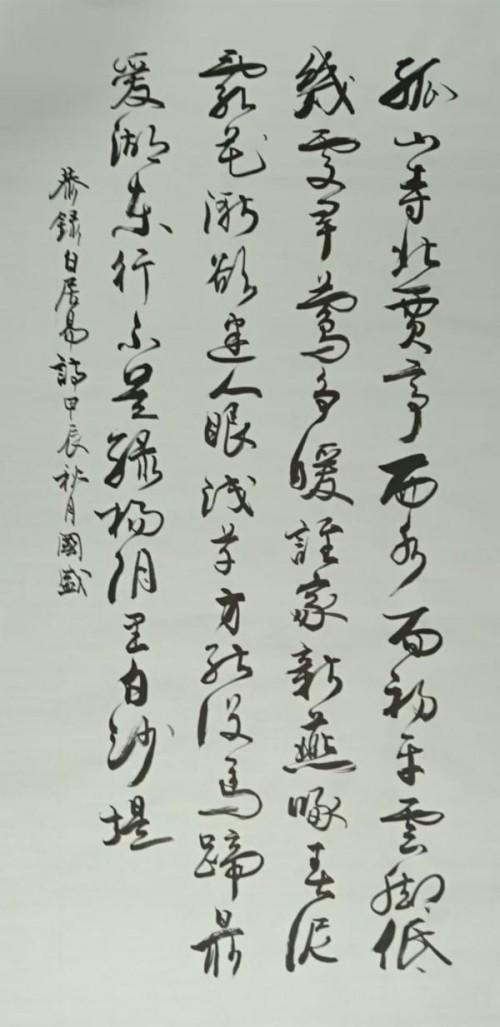 孤山寺北賈亭西水面初平雲脚低
幾處早鶯争暖誰家新燕啄春泥
亂花漸欲迷人眼浅草方能没馬蹄最
愛湖東行不足緑楊阴里白沙堤
恭録白居易詩甲辰秋月國盛